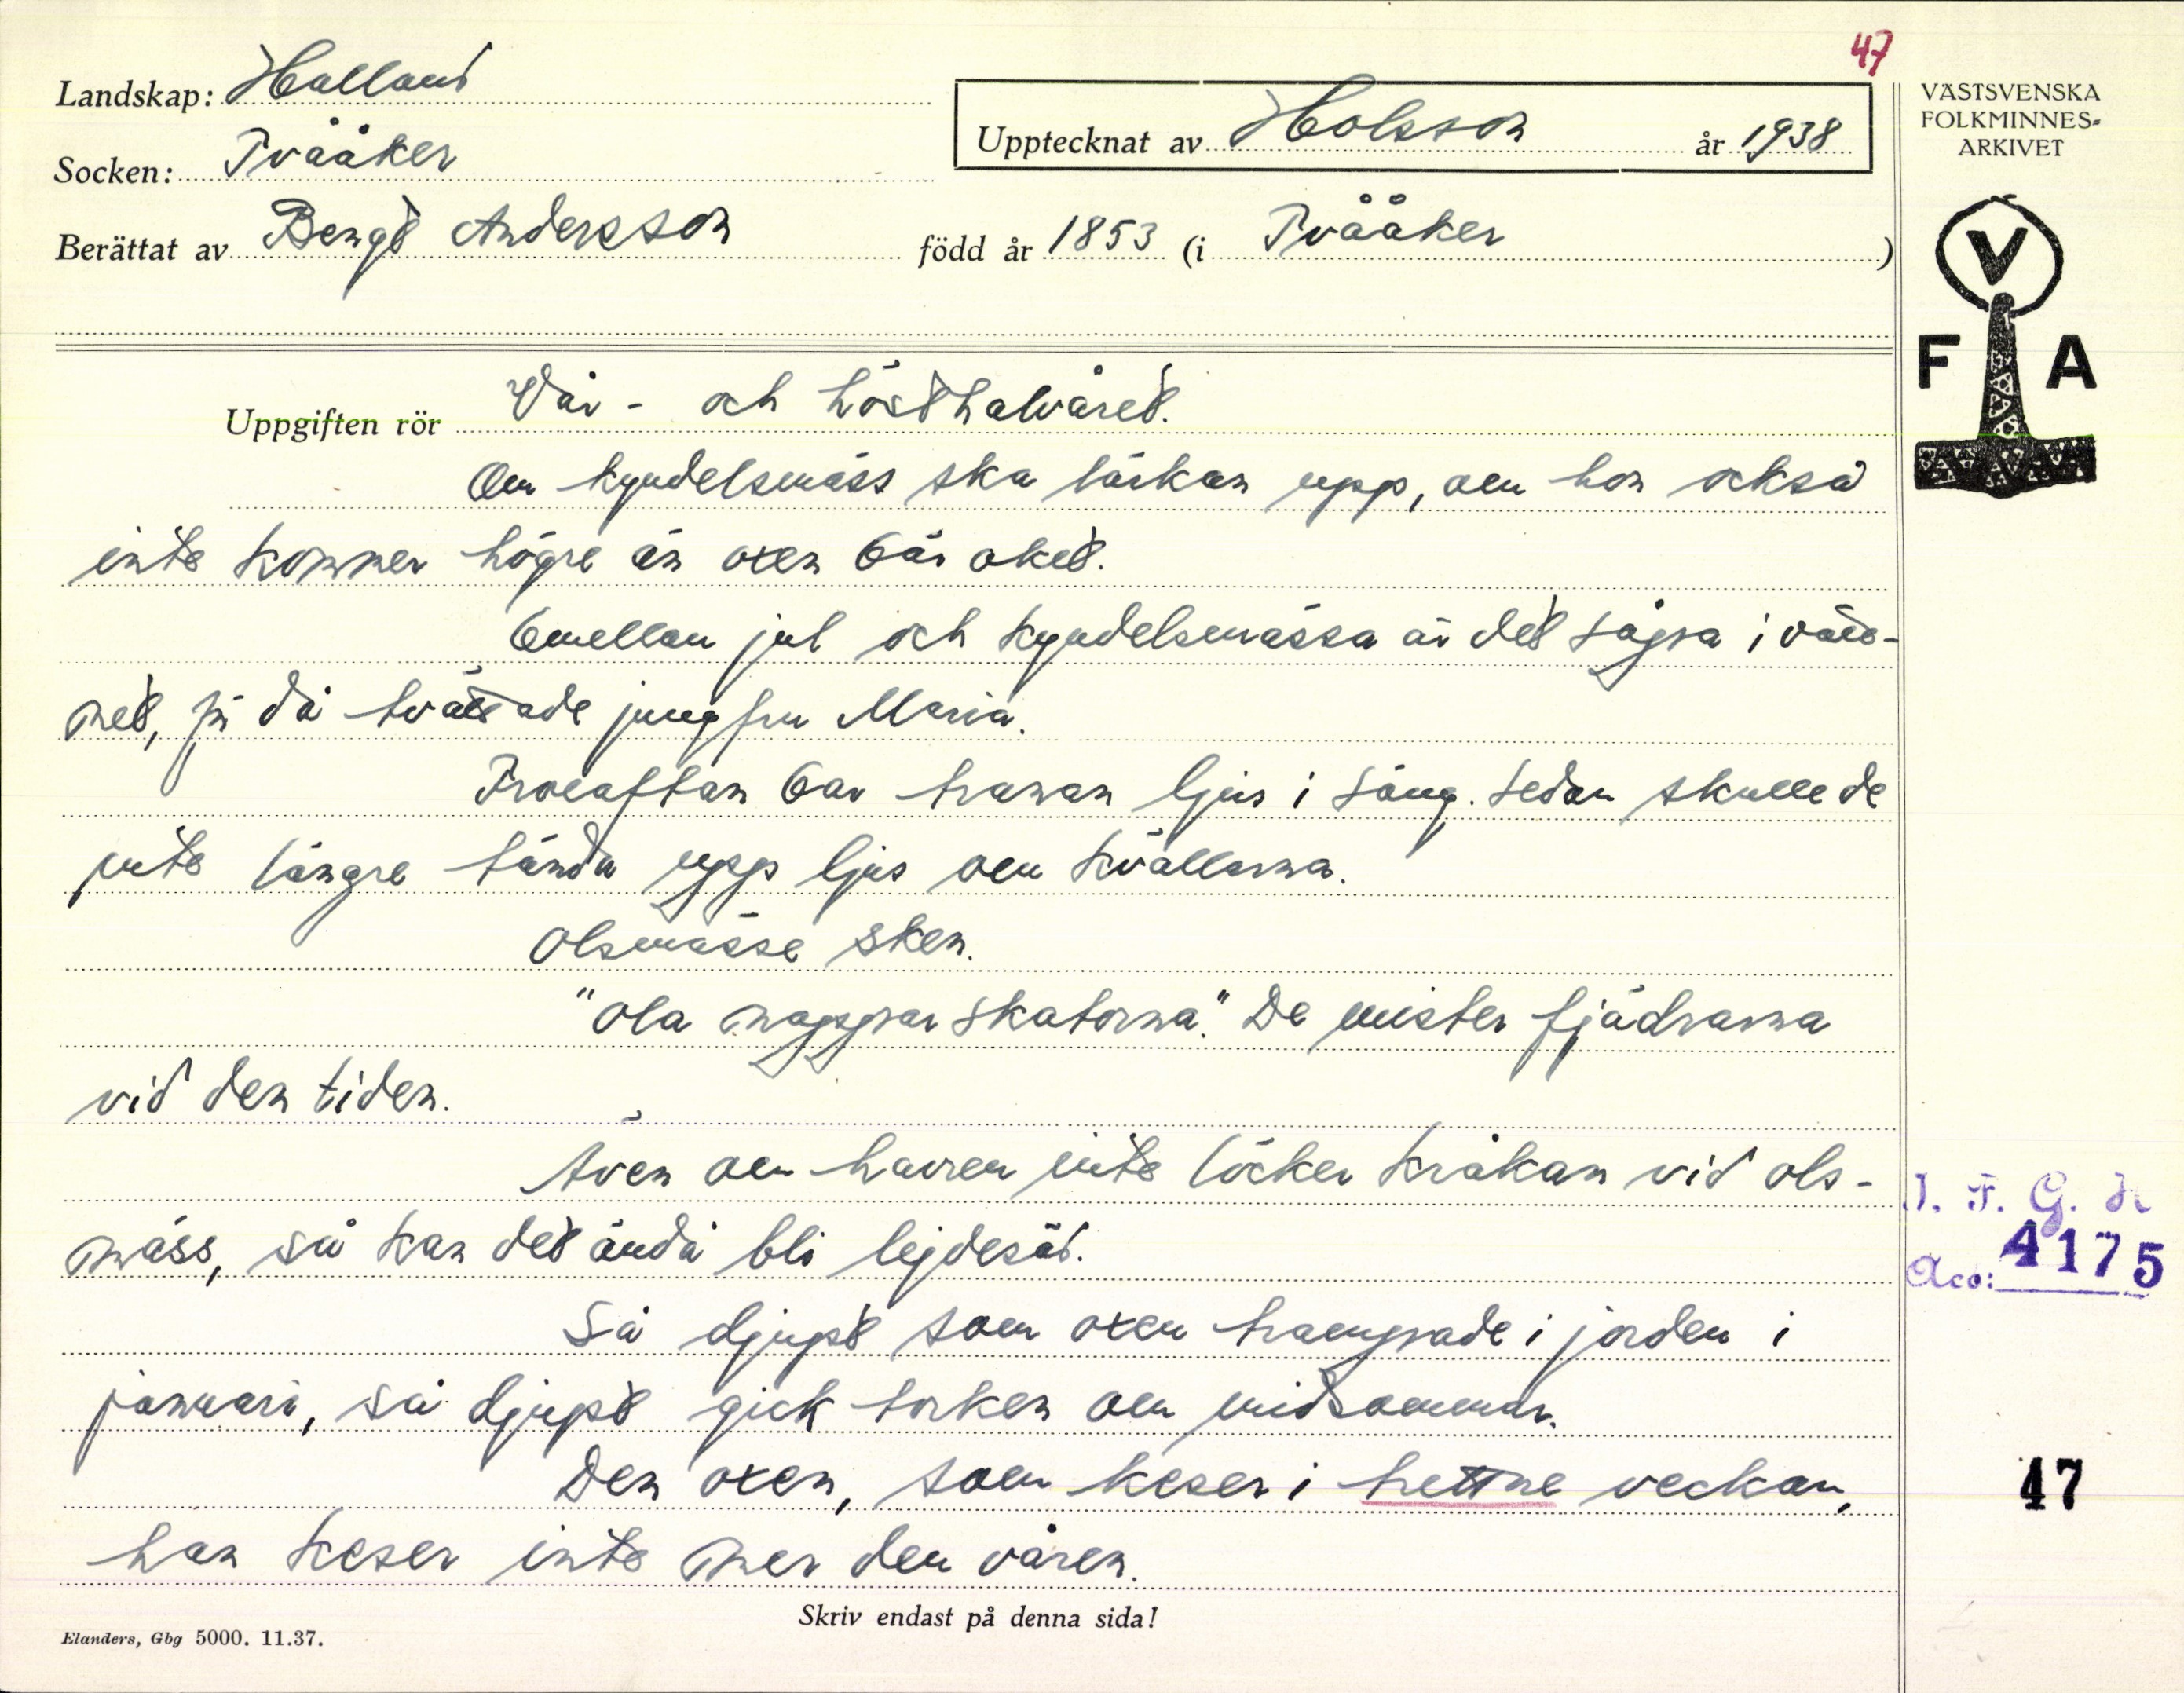 47
Landskap: Halland
Upptecknat av Holsson år 1938
Socken: Tvååker
Berättat av Bengt Andersson född år 1853 (i Tvååker)
VÄSTSVENSKA
FOLKMINNES-
ARKIVET
V
F A
Uppgiften rör Vår- och hösthalvåret.
Om kyndelsmäss ska lärkan upp, om hon också
inte kommer högre än oxen bär oket.
Emellan jul och kyndelsmässa är det sågra i vatt-
net, för då tvättade jungfru Maria.
Froeaftan bar tranan ljus i säng. Sedan skulle de
inte längre tända upp ljus om kvällarna.
Olsmässe sken.
"Ola nappar skatorna." De mister fjädrarna
vid den tiden.
Även om havren inte löcker kråkan vid ols-
mäss, så kan det ändå bli lejdesäd.
Så djupt som oxen trampade i jorden i
januari, så djupt gick torken om midsommar.
Den oxen, som keser i hettne veckan,
han keser inte mer den våren.
I. F. G. H
Acc: 4175
47
Skriv endast på denna sida!
Elanders, Gbg 5000. 11.37.